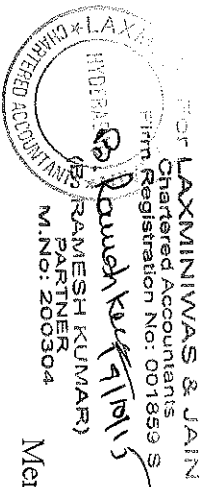 For LAXMINIWAS & JAIN
Chartered Accountants
Firm Registration No: 001859 S
(B. RAMESH KUMAR)
PARTNER
M.No: 200304
LAXM
HYDERAB
CHARTERED ACCOUNTAN
Mem